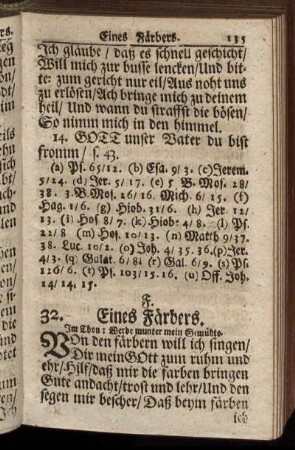 Eines Färbers. 135
Ich gläube/ daß es schnell geschicht/
Will mich zur busse lencken/Und bit-
te: zum gericht nur eil/Aus noht uns
zu erlösen/Ach bringe mich zu deinem
heil/ Und wann du straffst die bösen/
So nimm mich in den himmel.
14. GOTT unser Vater du bist
fromm/ s. 43.
(a) Ps. 65/12. (b) Esa. 9/3. (c)Jerem.
5/24. (d) Jer. 5/17. (e) 5 B. Mos. 28/
38. 3 B. Mos. 26/16. Mich. 6/15. (f)
Hag. 1/6. (g) Hiob. 31/6. (h) Jer. 12/
13. (i) Hos 8/7. (k) Hiob: 4/8. (l) Ps.
22/8 (m) Hos. 10/13. (n) Matth 9/37.
38. Luc. 10/2. (o) Joh. 4/35. 36.(p)Jer.
4/3. (q) Galat. 6/8. (r) Gal. 6/9. (s) Ps.
126/6. (t) Ps. 103/15. 16. (u) Off. Joh.
14/14. 15.
F.
32. Eines Färbers.
Im Thon: Werde munter mein Gemühte.
VOn den färbern will ich singen/
Dir mein GOtt zum ruhm und
ehr/Hilf/daß mir die farben bringen
Gute andacht/trost und lehr/Und den
segen mir bescher/ Daß beym färben
ich